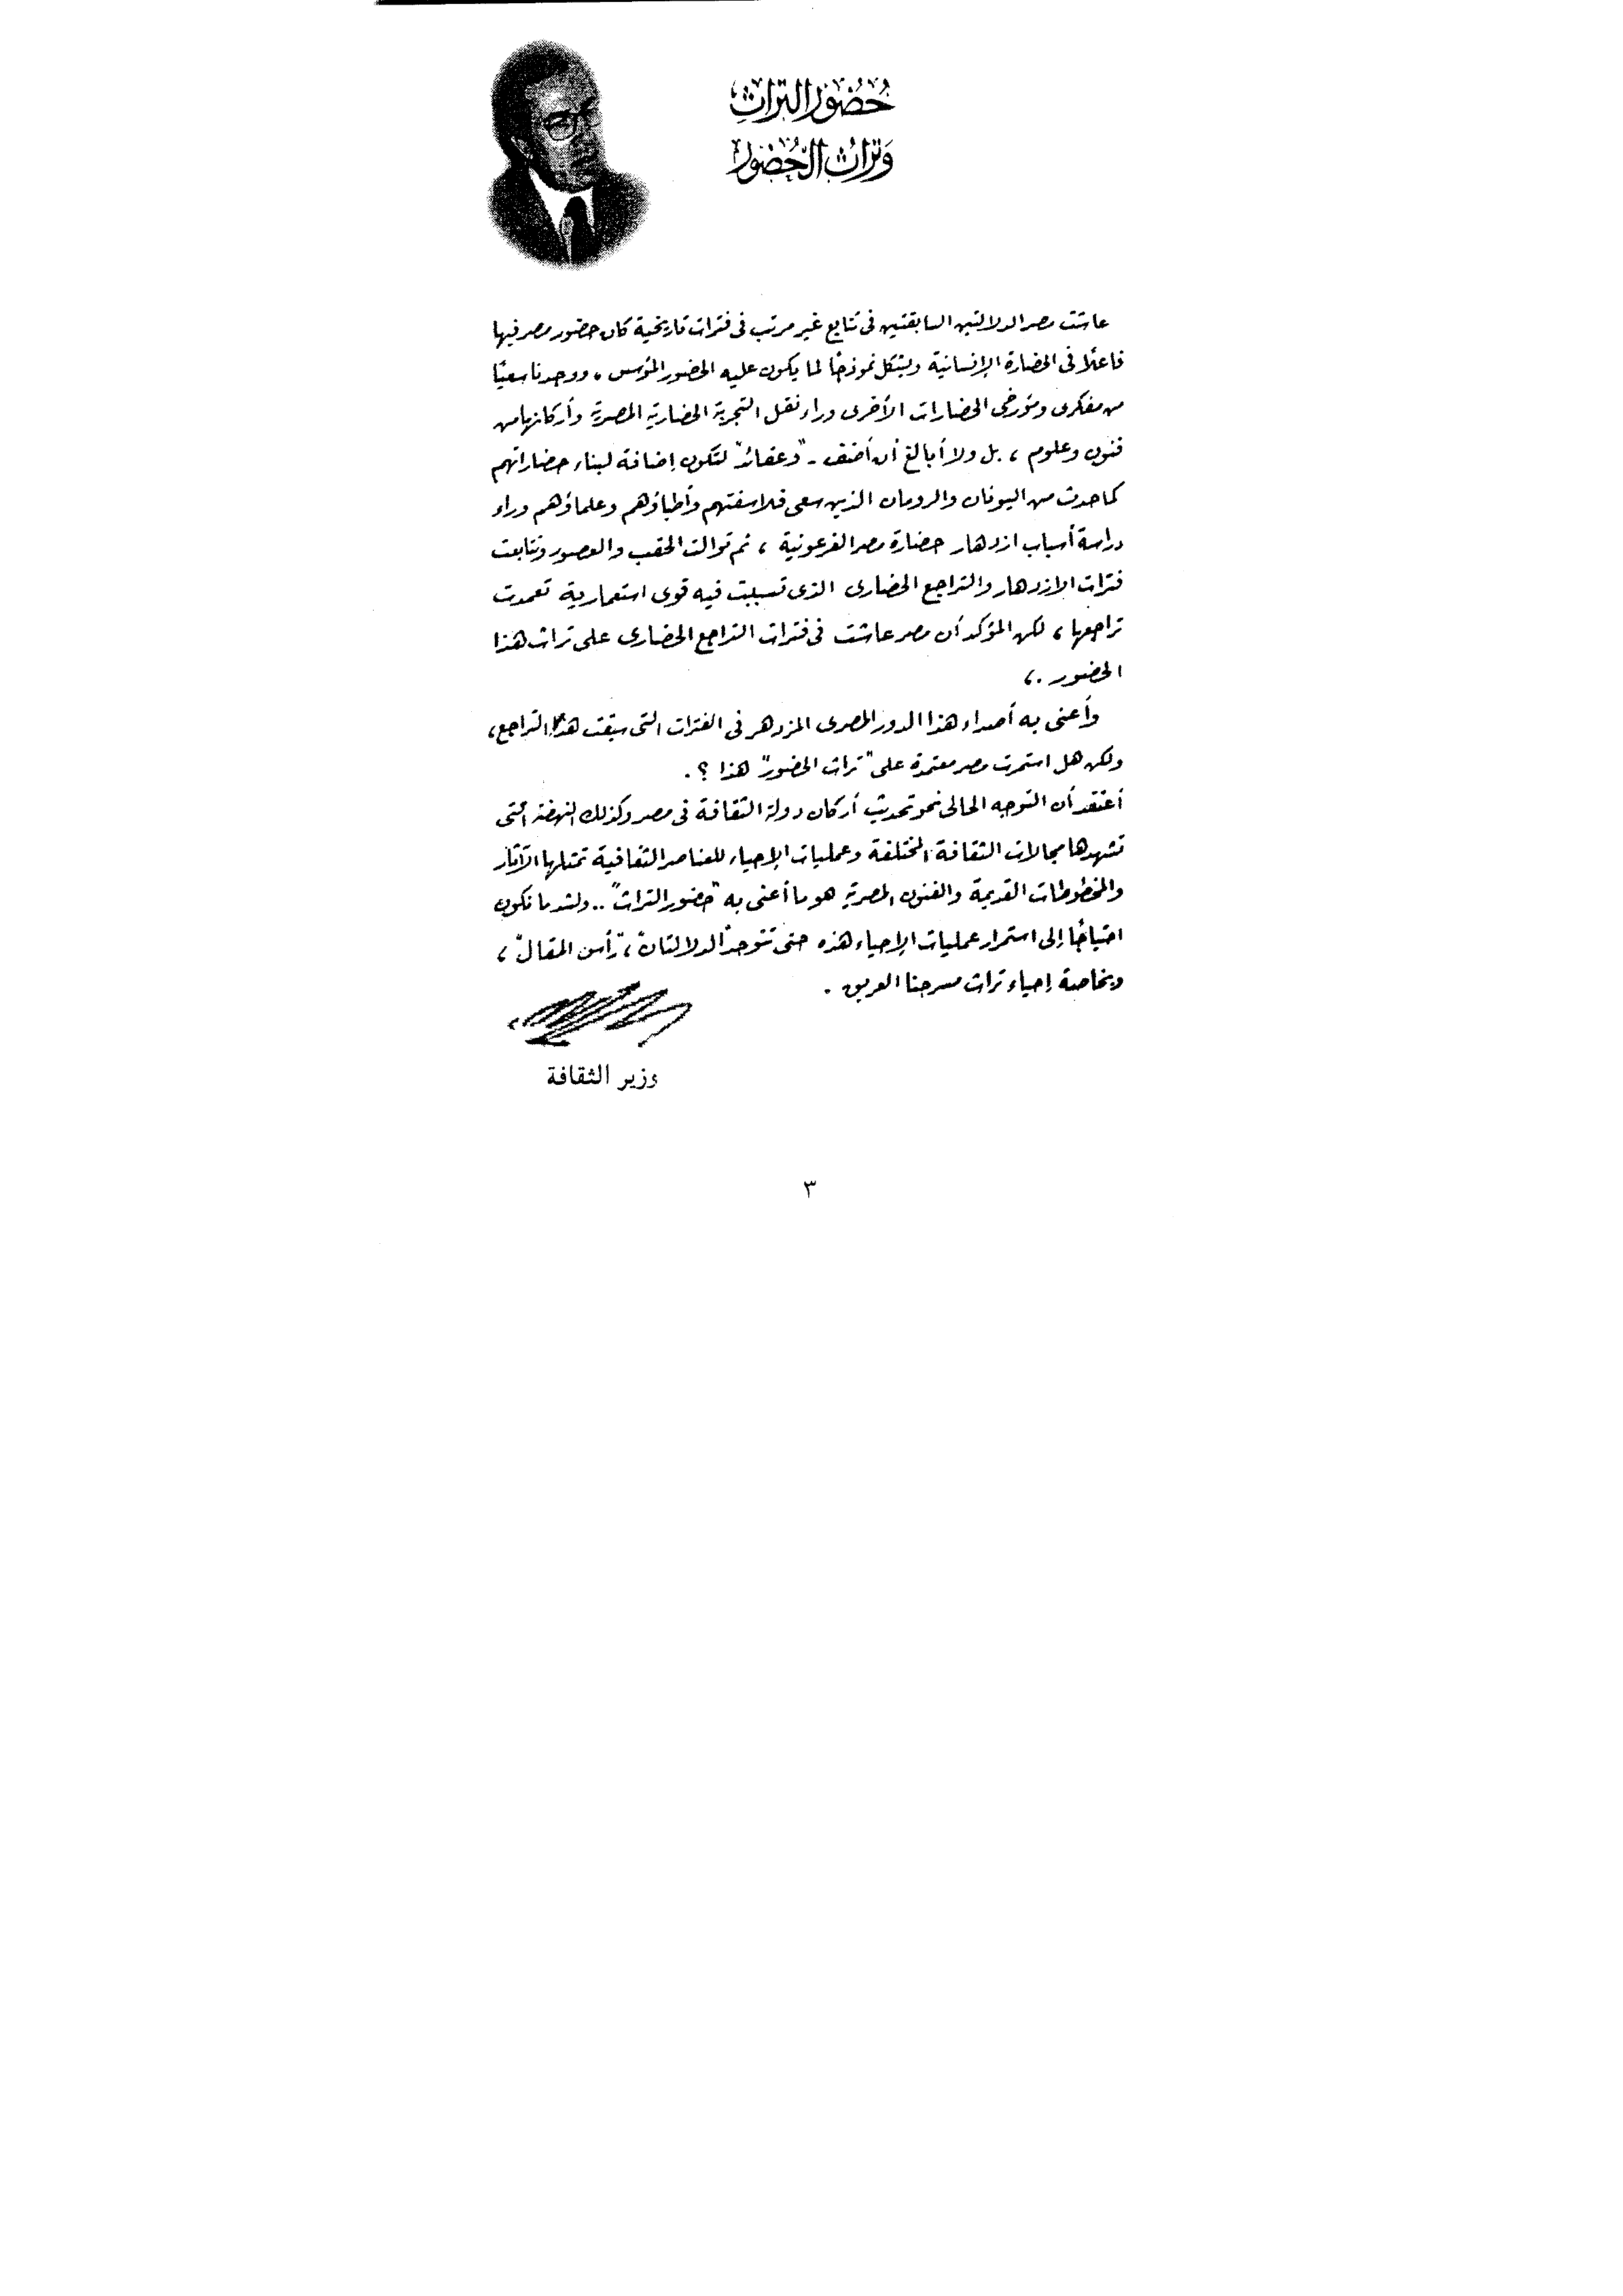 حُضُور التراثِ
وَتراثُ الحُضور
عاشت مصر الدلالتين السابقتين فى تتابع غير مرتب فى فترات تاريخية كان حضور مصر فيها
فاعلًا فى الحضارة الإنسانية ويشكل نموذجًا لما يكون عليه الحضور المؤسس، ووجدنا سعيًا
من مفكرى ومؤرخى الحضارات الأخرى وراء نقل التجربة الحضارية المصرية وأركانها من
فنون وعلوم ، بل ولا أبالغ أن أضيف - "وعقائد" لتكون إضافة لبناء حضاراتهم
كما حدث من اليونان والرومان الذين سعى فلاسفتهم وأطباؤهم وعلماؤهم وراء
دراسة أسباب ازدهار حضارة مصر الفرعونية ، ثم توالت الحقب والعصور وتتابعت
فترات الازدهار والتراجع الحضارى الذى تسببت فيه قوى استعمارية تعمدت
تراجعها ، لكن المؤكد أن مصر عاشت فى فترات التراجع الحضارى على تراث هذا
الحضور .،
وأعنى به أصداء هذا الدور المصرى المزدهر فى الفترات التى سبقت هذا التراجع،
ولكن هل استمرت مصر معتمدة على "تراث الحضور" هذا ؟ .
أعتقد أن التوجه الحالى نحو تحديث أركان دولة الثقافة فى مصر وكذلك النهضة التى
تشهدها مجالات الثقافة المختلفة وعمليات الإحياء للعناصر الثقافية تمثلها الآثار
والمخطوطات القديمة والفنون المصرية هو ما أعنى به "حضور التراث" .. ولشد ما نكون
احتياجًا إلى استمرار عمليات الإحياء هذه حتى تتوحد "الدلالتان"، "رأس المقال" ،
وبخاصة إحياء تراث مسرحنا العريق .
وزير الثقافة
٣